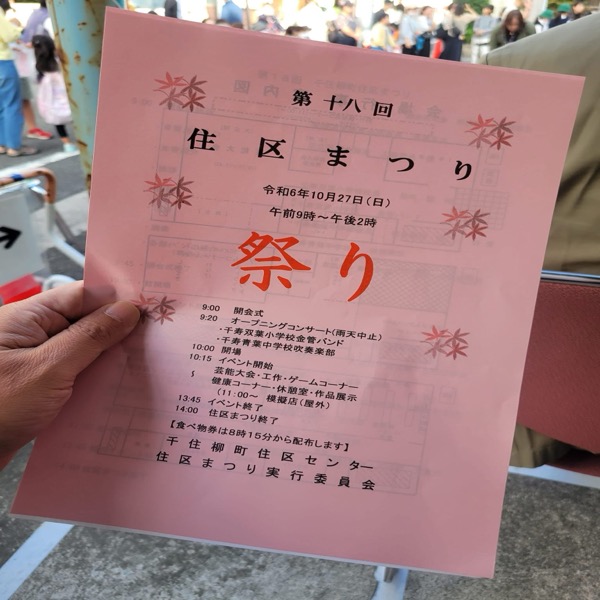 第十八回
住区まつり
令和6年10月27日(日)
午前9時~午後2時
祭り
9:00 開会式
9:20 オープニングコンサート(雨天中止)
・千寿双葉小学校金管バンド
・千寿青葉中学校吹奏楽部
10:00 開場
10:15 イベント開始
~ 芸能大会・工作・ゲームコーナー
健康コーナー・休憩室・作品展示
(11:00~ 模擬店(屋外)
13:45 イベント終了
14:00 住区まつり終了
【食べ物券は8時15分から配布します】
千住柳町住区センター
住区まつり実行委員会